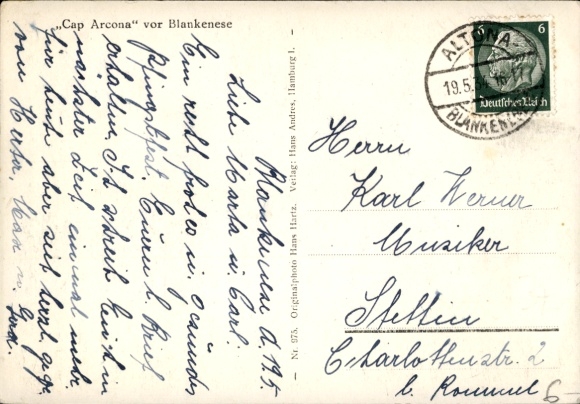 „Cap Arcona“ vor Blankenese
Blankenese d. 19.5.
Liebe Marta u. Carl!
Ein recht frohes u. gesundes
Pfingstfest. Euern l. Brief
erhalten, Ich schreibe Euch in
nächster Zeit einmal mehr.
Für heute aber seid herzl. gegr.
von Herta, Max u. Gerd.
Nr. 975. Originalphoto Hans Hartz. Verlag: Hans Andres, Hamburg 1.
ALTONA-
19.5.
BLANKENESE
6 6
Deutsches Reich
Herrn
Karl Werner
Musiker
Stettin
Charlottenstr. 2
b. Rommel
6